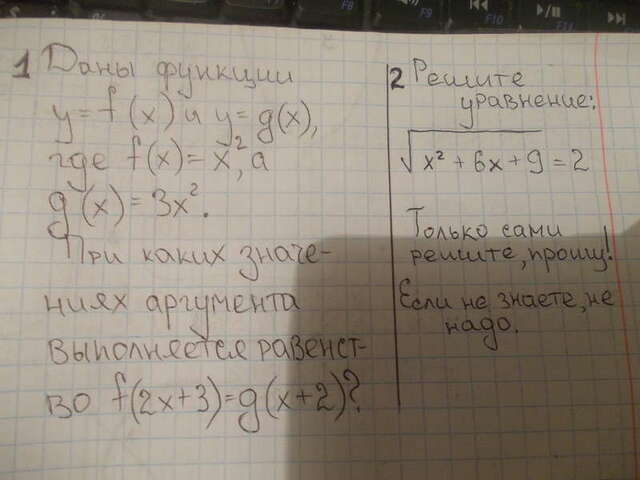 1 Даны функции
y=f(x) и y=g(x),
где f(x)=x², а
g(x)=3x².
При каких значе-
ниях аргумента
выполняется равенст-
во f(2x+3)=g(x+2)?
2 Решите
уравнение:
√x²+6x+9=2
Только сами
решите, прошу!
Если не знаете, не
надо.
F8
F9
F10
F11